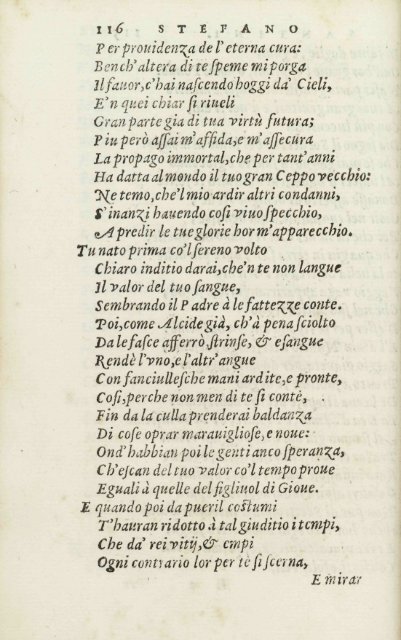 116 STEFANO
Per prouidenza de l'eterna cura:
Bench'altera di te ſpeme mi porga
Il fauor, c'hai naſcendo hoggi da' Cieli,
E'n quei chiar ſi riueli
Gran parte gia di tua virtù futura;
Piu però aſſai m'affida, e m'aſſecura
La propago immortal, che per tant'anni
Ha datta al mondo il tuo gran Ceppo vecchio:
Ne temo, che'l mio ardir altri condanni,
S'inanzi hauendo coſi viuo ſpecchio,
A predir le tue glorie hor m'apparecchio.
Tu nato prima co'l ſereno volto
Chiaro inditio darai, che'n te non langue
Il valor del tuo ſangue,
Sembrando il Padre à le fattezze conte.
Poi, come Alcide già, ch'à pena ſciolto
Da le faſce afferrò, ſtrinſe, & eſangue
Rendè l'vno, e l'altr'angue
Con fanciulleſche mani ardite, e pronte,
Coſi, perche non men di te ſi conte,
Fin da la culla prenderai baldanza
Di coſe oprar marauiglioſe, e noue:
Ond'habbian poi le genti anco ſperanza,
Ch'eſcan del tuo valor co'l tempo proue
Eguali à quelle del figliuol di Gioue.
E quando poi da pueril coſtumi
T'hauran ridotto à tal giuditio i tempi,
Che da' rei vitij, & empi
Ogni contrario lor per te ſi ſcerna,
E mirar